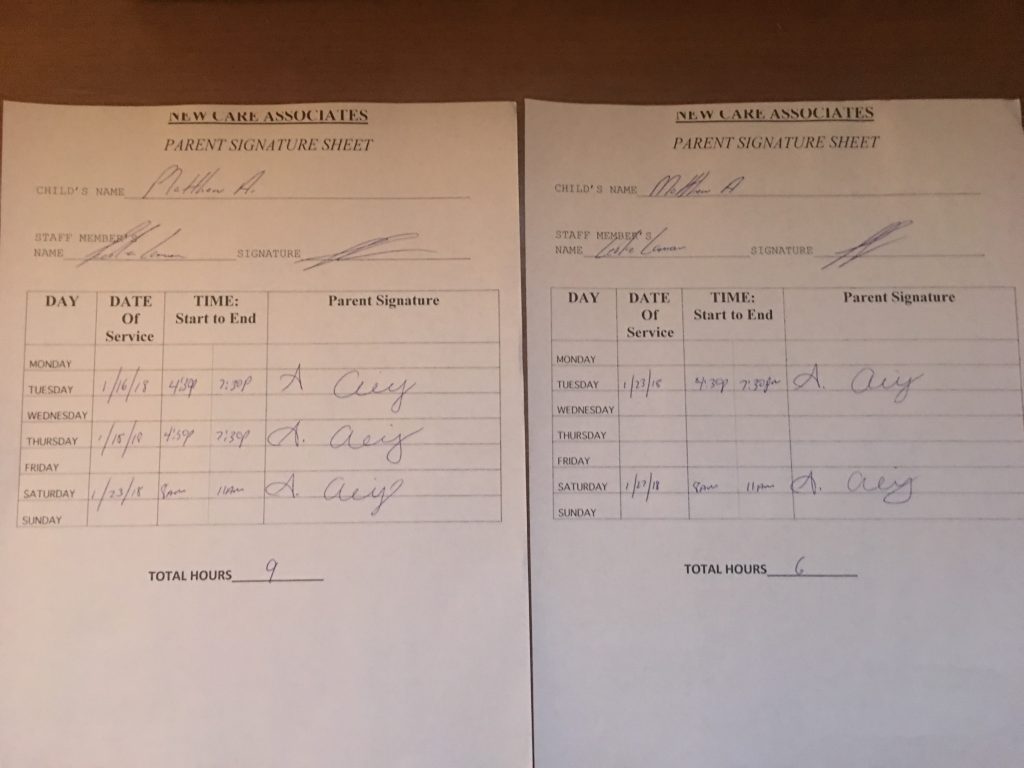 NEW CARE ASSOCIATES
PARENT SIGNATURE SHEET
CHILD'S NAME Matthew A.
STAFF MEMBER'S
NAME SIGNATURE
DAY DATE Of Service TIME: Start to End Parent Signature
MONDAY
TUESDAY 1/16/18 4:30p 7:30p A.
WEDNESDAY
THURSDAY 1/18/18 4:30p 7:30p A.
FRIDAY
SATURDAY 1/23/18 8am 11am A.
SUNDAY
TOTAL HOURS 9
NEW CARE ASSOCIATES
PARENT SIGNATURE SHEET
CHILD'S NAME Matthew A
STAFF MEMBER'S
NAME SIGNATURE
DAY DATE Of Service TIME: Start to End Parent Signature
MONDAY
TUESDAY 1/23/18 4:30p 7:30pm A.
WEDNESDAY
THURSDAY
FRIDAY
SATURDAY 1/27/18 8am 11am A.
SUNDAY
TOTAL HOURS 6